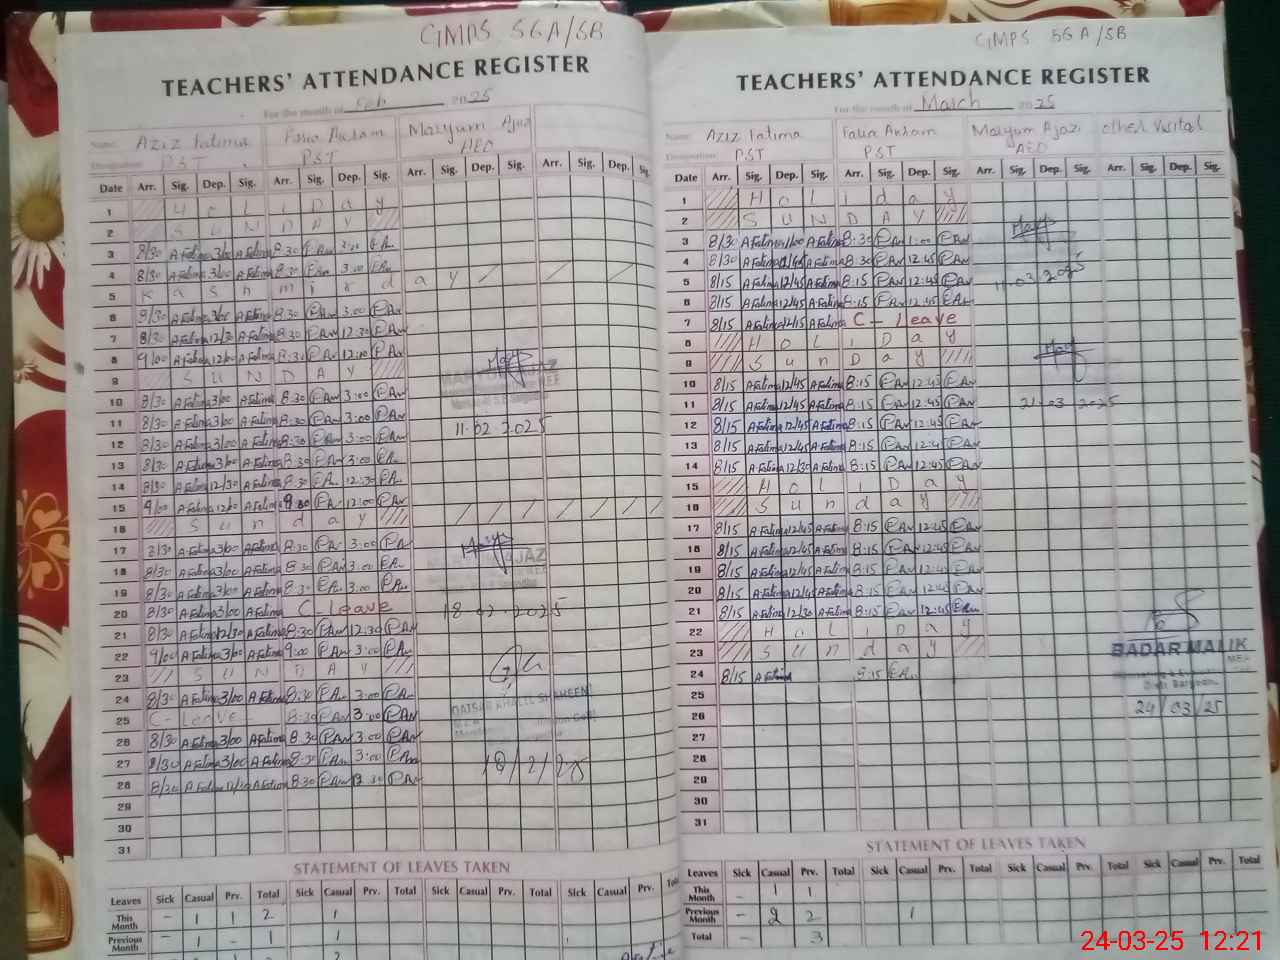 GMPS 56A/SB
TEACHERS' ATTENDANCE REGISTER
For the month of Feb 2025
Name: Aziz Fatima Faria Akram Maryum Ajaz
Designation: PST PST AEO
Date Arr. Sig. Dep. Sig. Arr. Sig. Dep. Sig. Arr. Sig. Dep. Sig. Arr. Sig. Dep. Sig.
1 H o L i D a y
2 S U N D A Y
3 8/30 A Fatima 3/00 A Fatima 8:30 3:00
4 8/30 A Fatima 3/00 A Fatima 8:30 3:00
5 K a s h m i r d a y
6 8/30 A Fatima 3/00 A Fatima 8:30 3:00
7 8/30 A Fatima 12/30 A Fatima 8:30 12:30
8 9/00 A Fatima 12/00 A Fatima 12:00
9 S U N D A Y
10 8/30 A Fatima 3/00 A Fatima 8:30 3:00
11 8/30 A Fatima 3/00 A Fatima 8:30 3:00
11-02-2025
12 8/30 A Fatima 3/00 A Fatima 8:30 3:00
13 8/30 A Fatima 3/00 A Fatima 8:30 3:00
14 8/30 A Fatima 12/30 A Fatima 8:30 12:30
15 9/00 A Fatima 12/00 A Fatima 9:00 12:00
16 S u n d a y
17 8/30 A Fatima 3/00 A Fatima 8:30 3:00
18 8/30 A Fatima 3/00 A Fatima 8:30 3:00
19 8/30 A Fatima 3/00 A Fatima 8:30 3:00
20 8/30 A Fatima 3/00 A Fatima C-Leave 18-02-2025
21 8/30 A Fatima 12/30 A Fatima 8:30 12:30
22 9/00 A Fatima 3/00 A Fatima 9:00 3:00
23 S U N D A Y
24 8/30 A Fatima 3/00 A Fatima 8:30 3:00
25 C-Leave 8:30 3:00
26 8/30 A Fatima 3/00 A Fatima 8:30 3:00
27 8/30 A Fatima 3/00 A Fatima 8:30 3:00
28 8/30 A Fatima 12/30 A Fatima 8:30 12:30
29
30
31
STATEMENT OF LEAVES TAKEN
Leaves Sick Casual Prv. Total Sick Casual Prv. Total Sick Casual Prv. Total Sick Casual Prv. Total
This Month - 1 1 2 1
Previous Month - 1 - 1 1
GMPS 56A/SB
TEACHERS' ATTENDANCE REGISTER
For the month of March 2025
Name: Aziz Fatima Faria Akram Maryum Ajaz other Visital
Designation: PST PST AEO
Date Arr. Sig. Dep. Sig. Arr. Sig. Dep. Sig. Arr. Sig. Dep. Sig. Arr. Sig. Dep. Sig.
1 H o L i d a y
2 S U N D A Y
3 8/30 A Fatima 1/00 A Fatima 8:30 1:00
4 8/30 A Fatima 12/45 A Fatima 8:30 12:45
5 8/15 A Fatima 12/45 A Fatima 8:15 12:45 11-03-2025
6 8/15 A Fatima 12/45 A Fatima 8:15 12:45
7 8/15 A Fatima 12/15 A Fatima C-Leave
8 H o L i D a y
9 S u n D a y
10 8/15 A Fatima 12/45 A Fatima 8:15 12:45
11 8/15 A Fatima 12/45 A Fatima 8:15 12:45 21-03-2025
12 8/15 A Fatima 12/45 A Fatima 8:15 12:45
13 8/15 A Fatima 12/45 A Fatima 8:15 12:45
14 8/15 A Fatima 12/30 A Fatima 8:15 12:45
15 H o L i D a y
16 S u n d a y
17 8/15 A Fatima 12/45 A Fatima 8:15 12:45
18 8/15 A Fatima 12/45 A Fatima 8:15 12:45
19 8/15 A Fatima 12/45 A Fatima 8:15 12:45
20 8/15 A Fatima 12/45 A Fatima 8:15 12:45
21 8/15 A Fatima 12/30 A Fatima 8:15 12:45
22 H o L i D a y
23 S u n d a y
BADAR MALIK
24 8/15 A Fatima 8:15
25
26 24/03/25
27
28
29
30
31
STATEMENT OF LEAVES TAKEN
Leaves Sick Casual Prv. Total Sick Casual Prv. Total Sick Casual Prv. Total Sick Casual Prv. Total
This Month - 1 1
Previous Month - 2 2 1
Total - 3
24-03-25 12:21